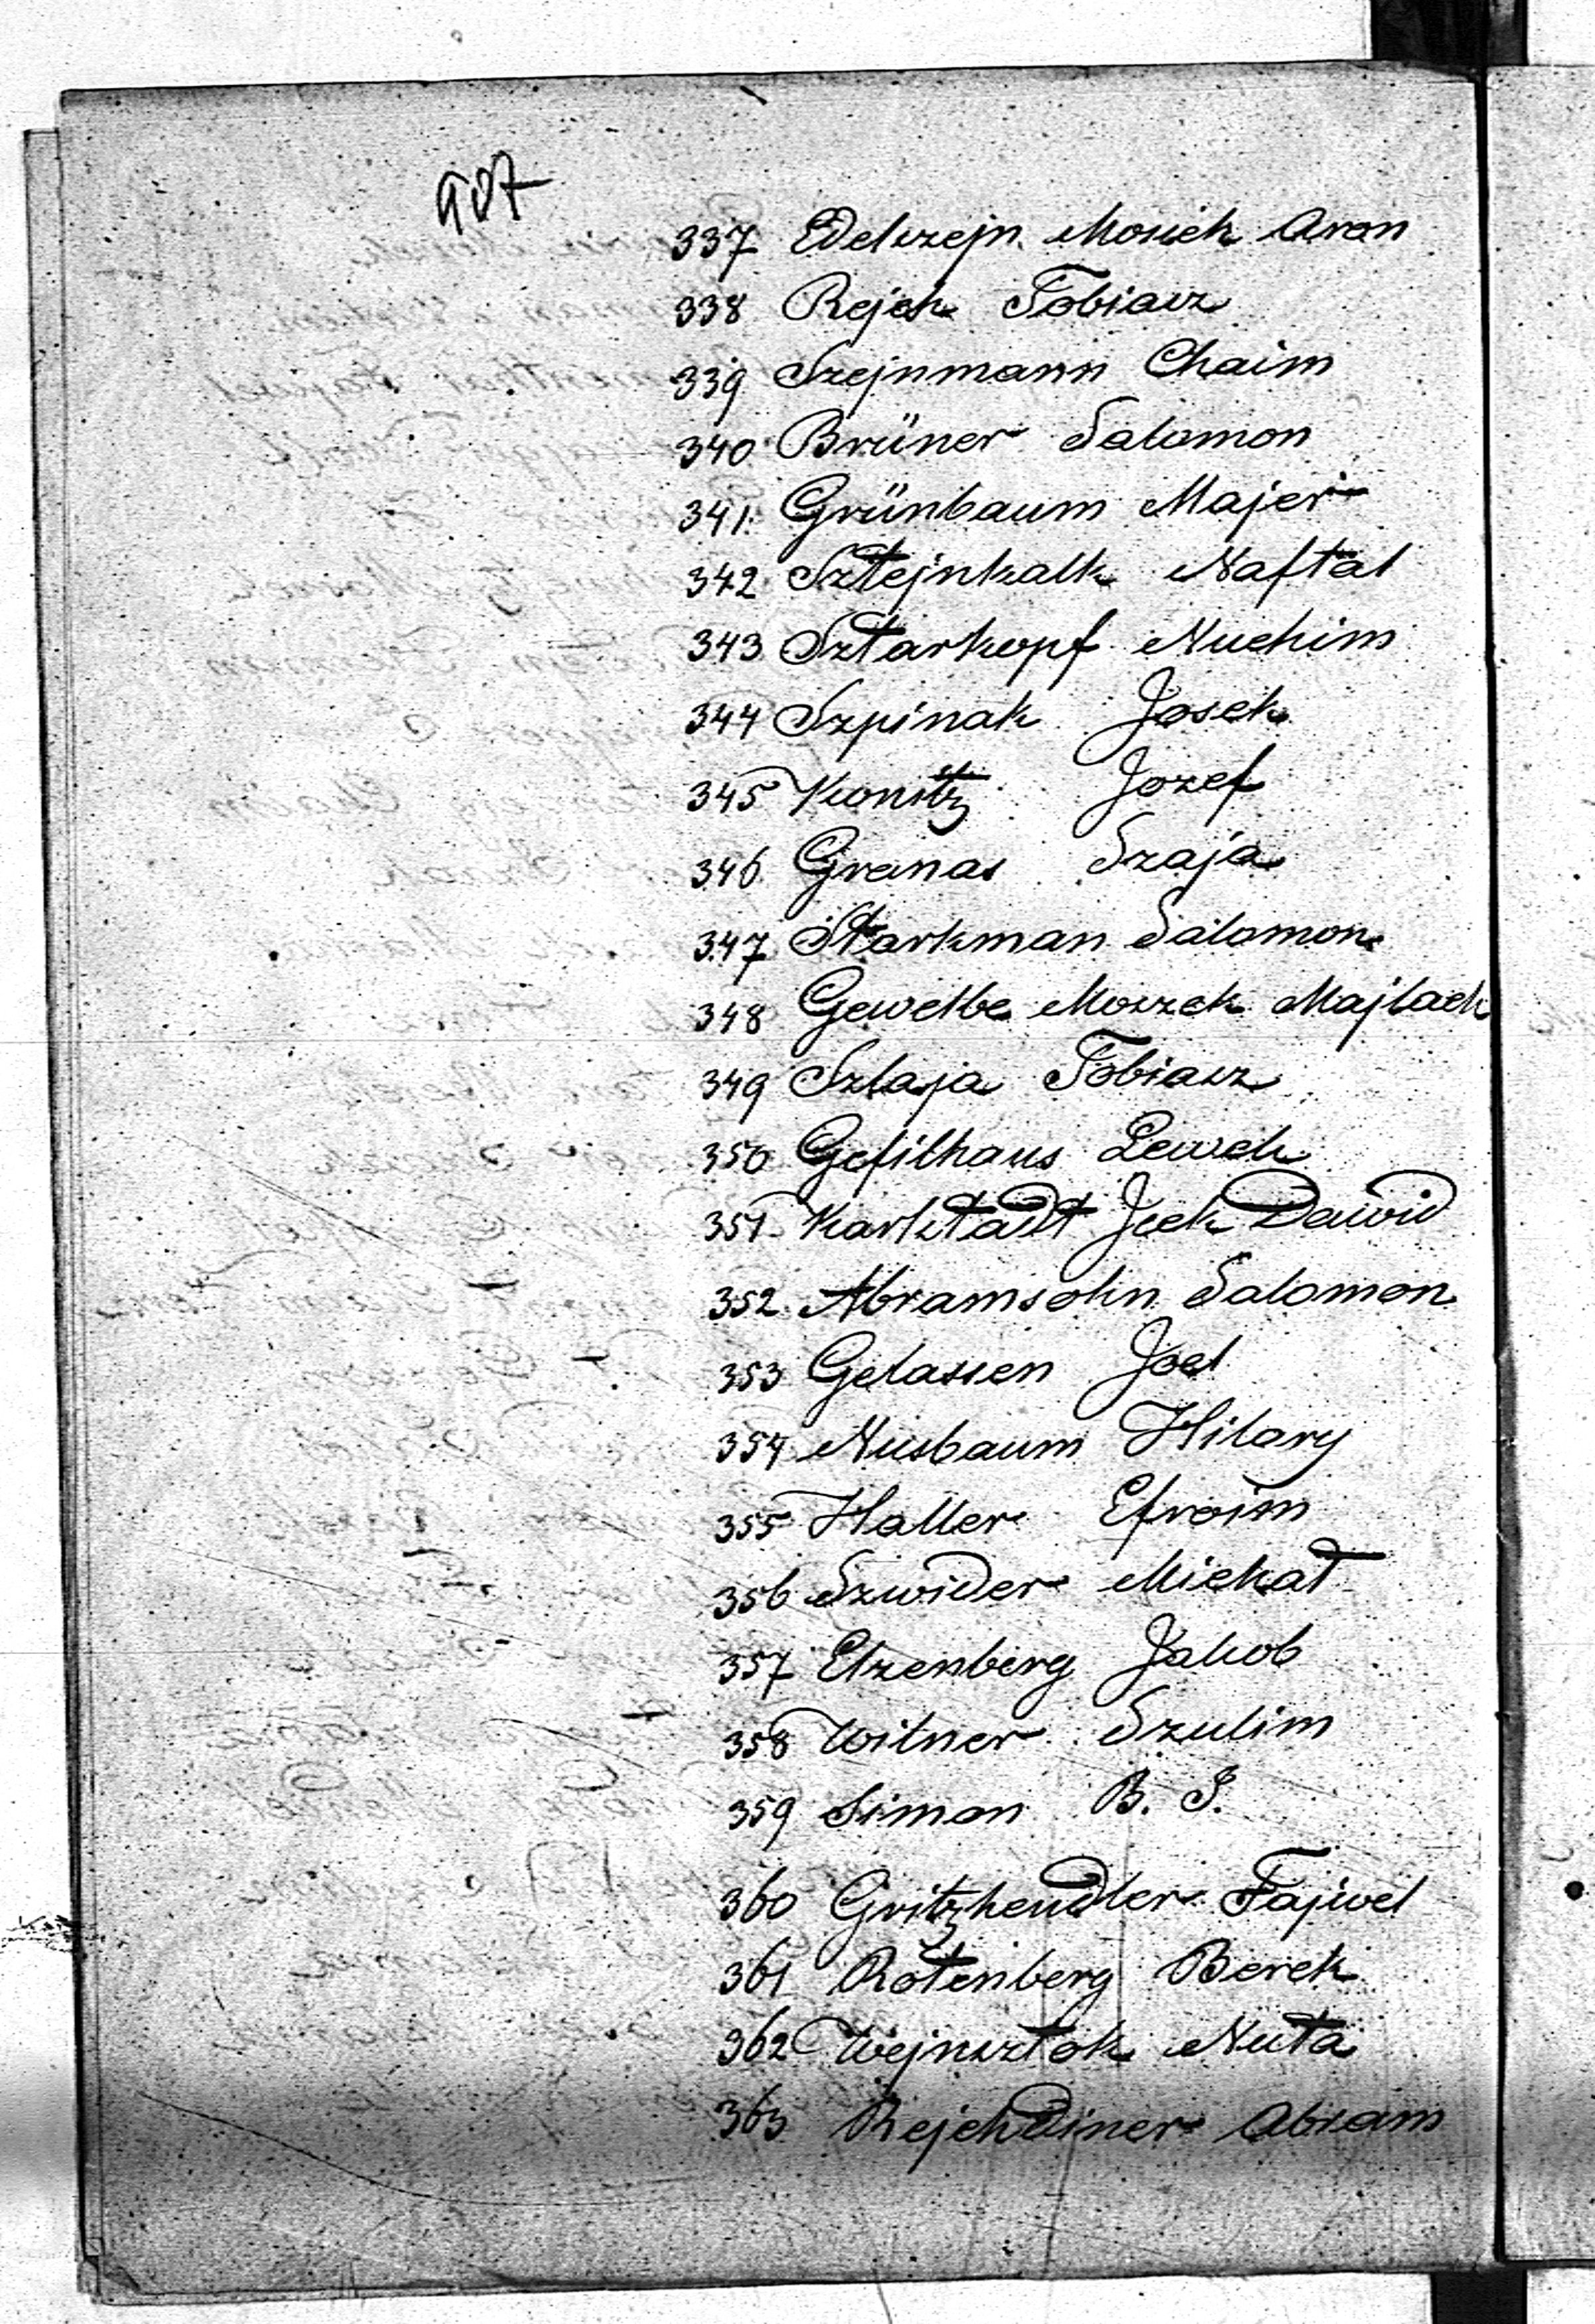 907
337 Edelszejn Mosiek Aron
338 Rejch Tobiasz
339 Szejnmann Chaim
340 Brüner Salomon
341 Grünbaum Majer
342 Sztejnkalk Naftal
343 Sztarkopf Nuchim
344 Szpinak Josek
345 Konitz Jozef
346 Granas Szaja
347 Starkman Salomon
348 Gewelbe Moszek Majlach
349 Szlaja Tobiasz
350 Gefilhaus Lewek
351 Karlstadt Icek Dawid
352 Abramsohn Salomon
353 Gelassen Joel
354 Nusbaum Hilary
355 Haller Efroim
356 Szwider Michał
357 Elzenberg Jakob
358 Witner Szulim
359 Simon B. I.
360 Gritzhendler Fajwel
361 Rotenberg Berek
362 Wejnsztok Nuta
363 Rejchdiner Abram